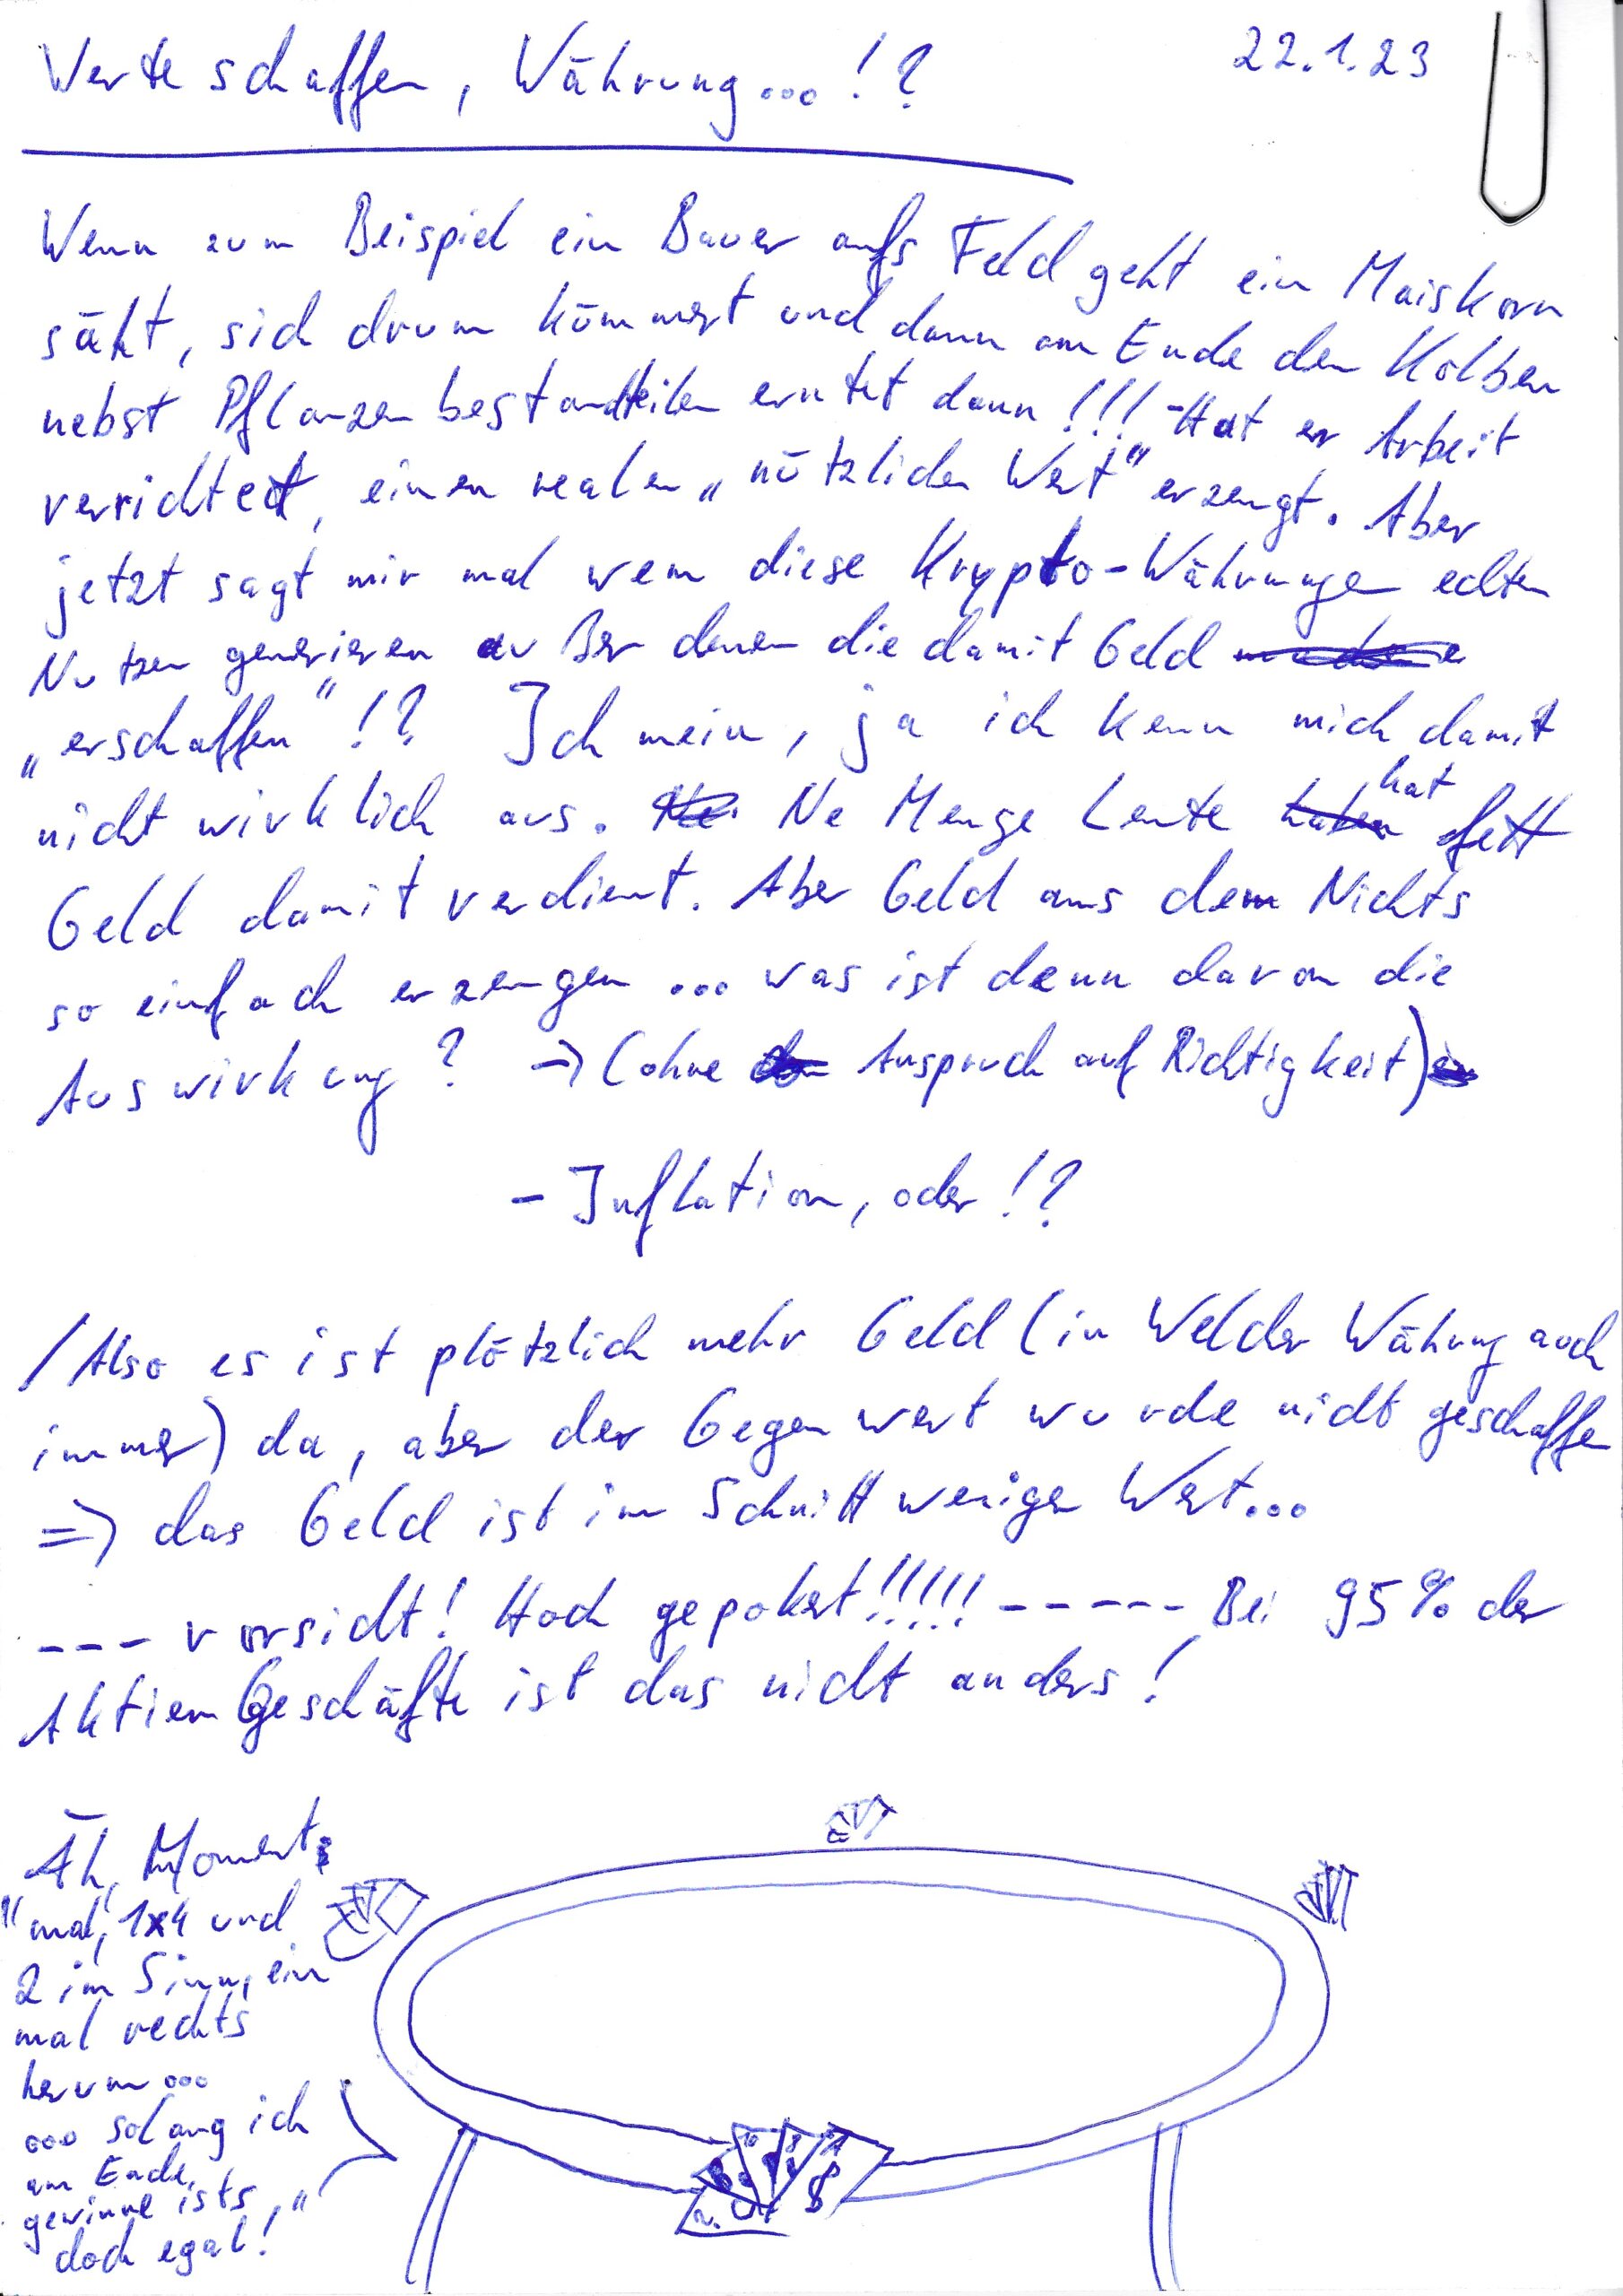 Werte schaffen, Währung...!?
22.1.23
Wenn zum Beispiel ein Bauer aufs Feld geht ein Maiskorn
säht, sich drum kümmert und dann am Ende den Kolben
nebst Pflanzenbestandteilen erntet dann!!! - Hat er Arbeit
verrichtet, einen realen „nützlichen Wert" erzeugt. Aber
jetzt sagt mir mal wem diese Krypto-Währungen echten
Nutzen generieren außer denen die damit Geld
„erschaffen"!? Ich mein, ja ich kenn mich damit
nicht wirklich aus. Ne Menge Leute hat fett
Geld damit verdient. Aber Geld aus dem Nichts
so einfach erzeugen ... was ist denn davon die
Auswirkung? → (ohne Anspruch auf Richtigkeit)
- Inflation, oder!?
/Also es ist plötzlich mehr Geld (in Welcher Währung auch
immer) da, aber der Gegenwert wurde nicht geschaffen
=> das Geld ist im Schnitt weniger Wert...
--- vorsicht! Hoch gepokert!!!!! ----- Bei 95% der
Aktien Geschäfte ist das nicht anders!
Äh, Moment
"mal", 1x4 und
2 im Sinn, ein
mal rechts
herum...
... solang ich
am Ende,
gewinne ists,"
doch egal!